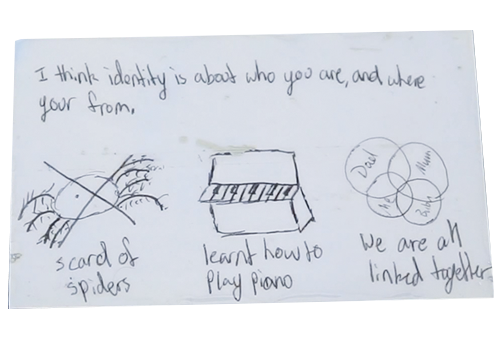 I think identity is about who you are, and where
your from.
scard of
spiders
learnt how to
play piano
Dad
Mum
Me
We are all
linked together